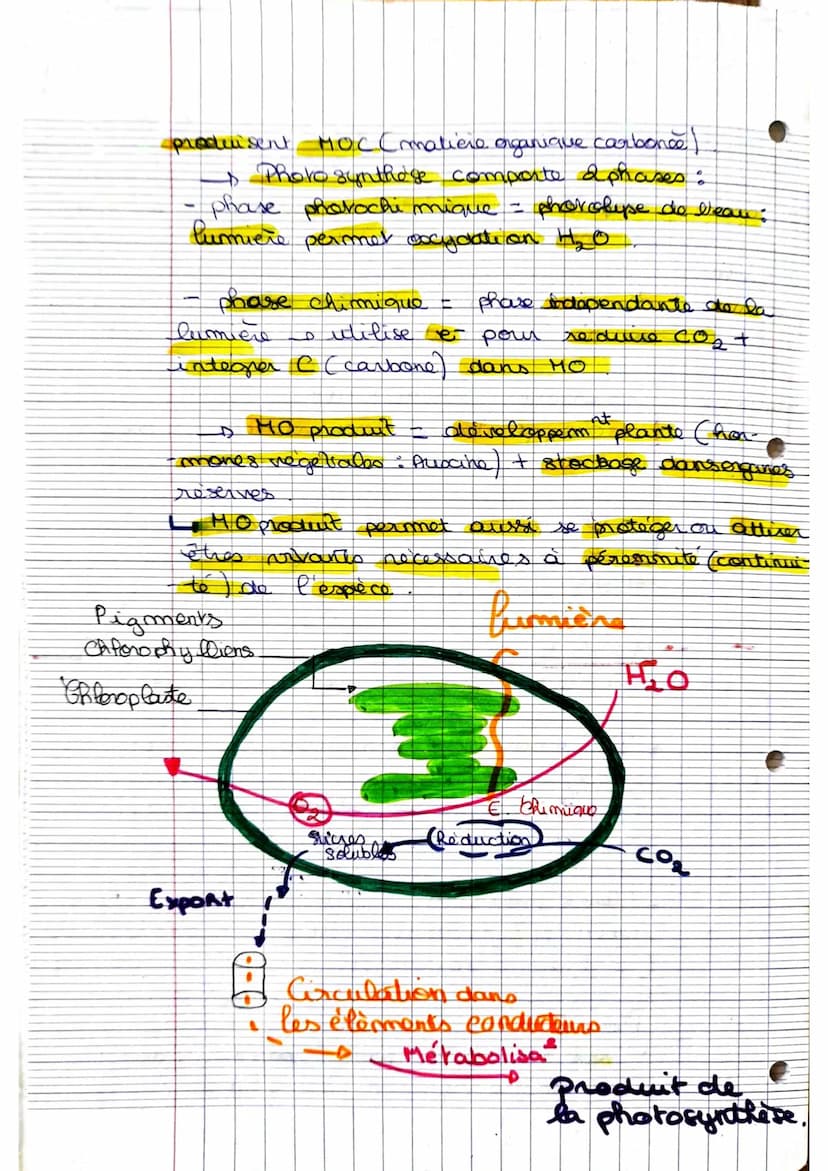 produisent MOC (matière organique carbonée)
→ Photosynthèse comporte 2 phases :
- phase photochimique = photolyse de l'eau :
lumière permet oxydation H₂O
- phase chimique = phase indépendante de la
lumière → utilise e⁻ pour réduire CO₂ +
intégrer C (carbone) dans MO
→ MO produit = développemnt plante (hor-
-mones végétales : Auxine) + stockage dans organes
réserves.
↳ MO produit permet aussi se protéger ou attirer
êtres vivants nécessaires à pérennité (continui-
-té) de l'espèce.
lumière
Pigments
chlorophylliens
Chloroplaste
H₂O
O₂
E chimique
sucres
solubles
Réduction
CO₂
Export
Circulation dans
les éléments conducteurs
→ Métabolisa°
Produit de
la photosynthèse.